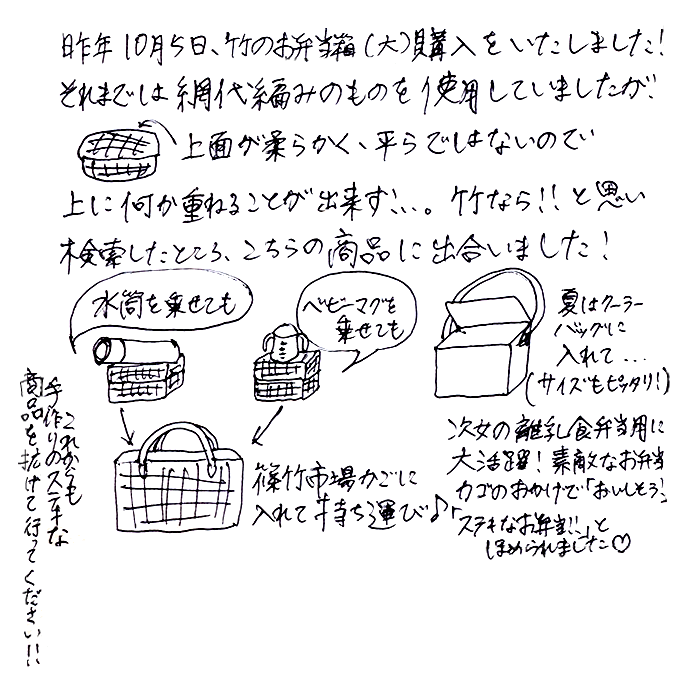 昨年10月5日、竹のお弁当箱(大)購入をいたしました!
それまでは網代編みのものを使用していましたが、
上面が柔らかく、平らではないので
上に何か重ねることが出来ず…。竹なら!!と思い
検索したところ、こちらの商品に出合いました!
水筒を乗せても
ベビーマグを
乗せても
夏はクーラー
バッグに
入れて…
(サイズもピッタリ!)
篠竹市場かごに
入れて持ち運び♪
次女の離乳食弁当用に
大活躍!素敵なお弁当
カゴのおかげで「おいしそう!」
「ステキなお弁当!!」と
ほめられました♡
これからも
手作りのステキな
商品を拡げて行ってください!!